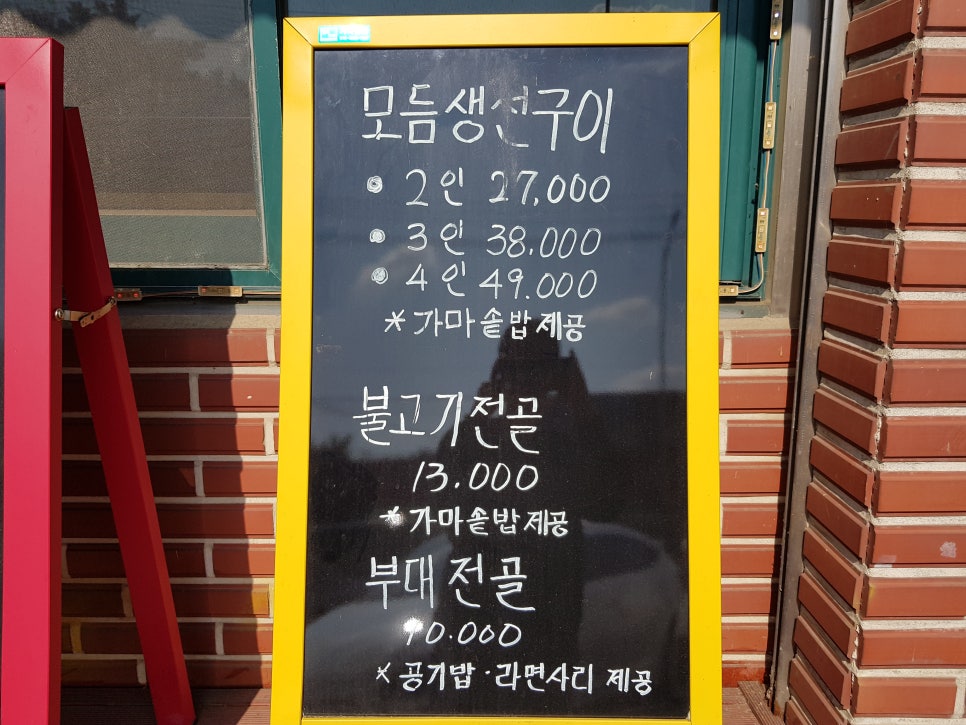 모듬생선구이
2인 27,000
3인 38.000
4인 49.000
*가마솥밥제공
불고기전골
13.000
*가마솥밥제공
부대전골
10.000
*공기밥·라면사리 제공